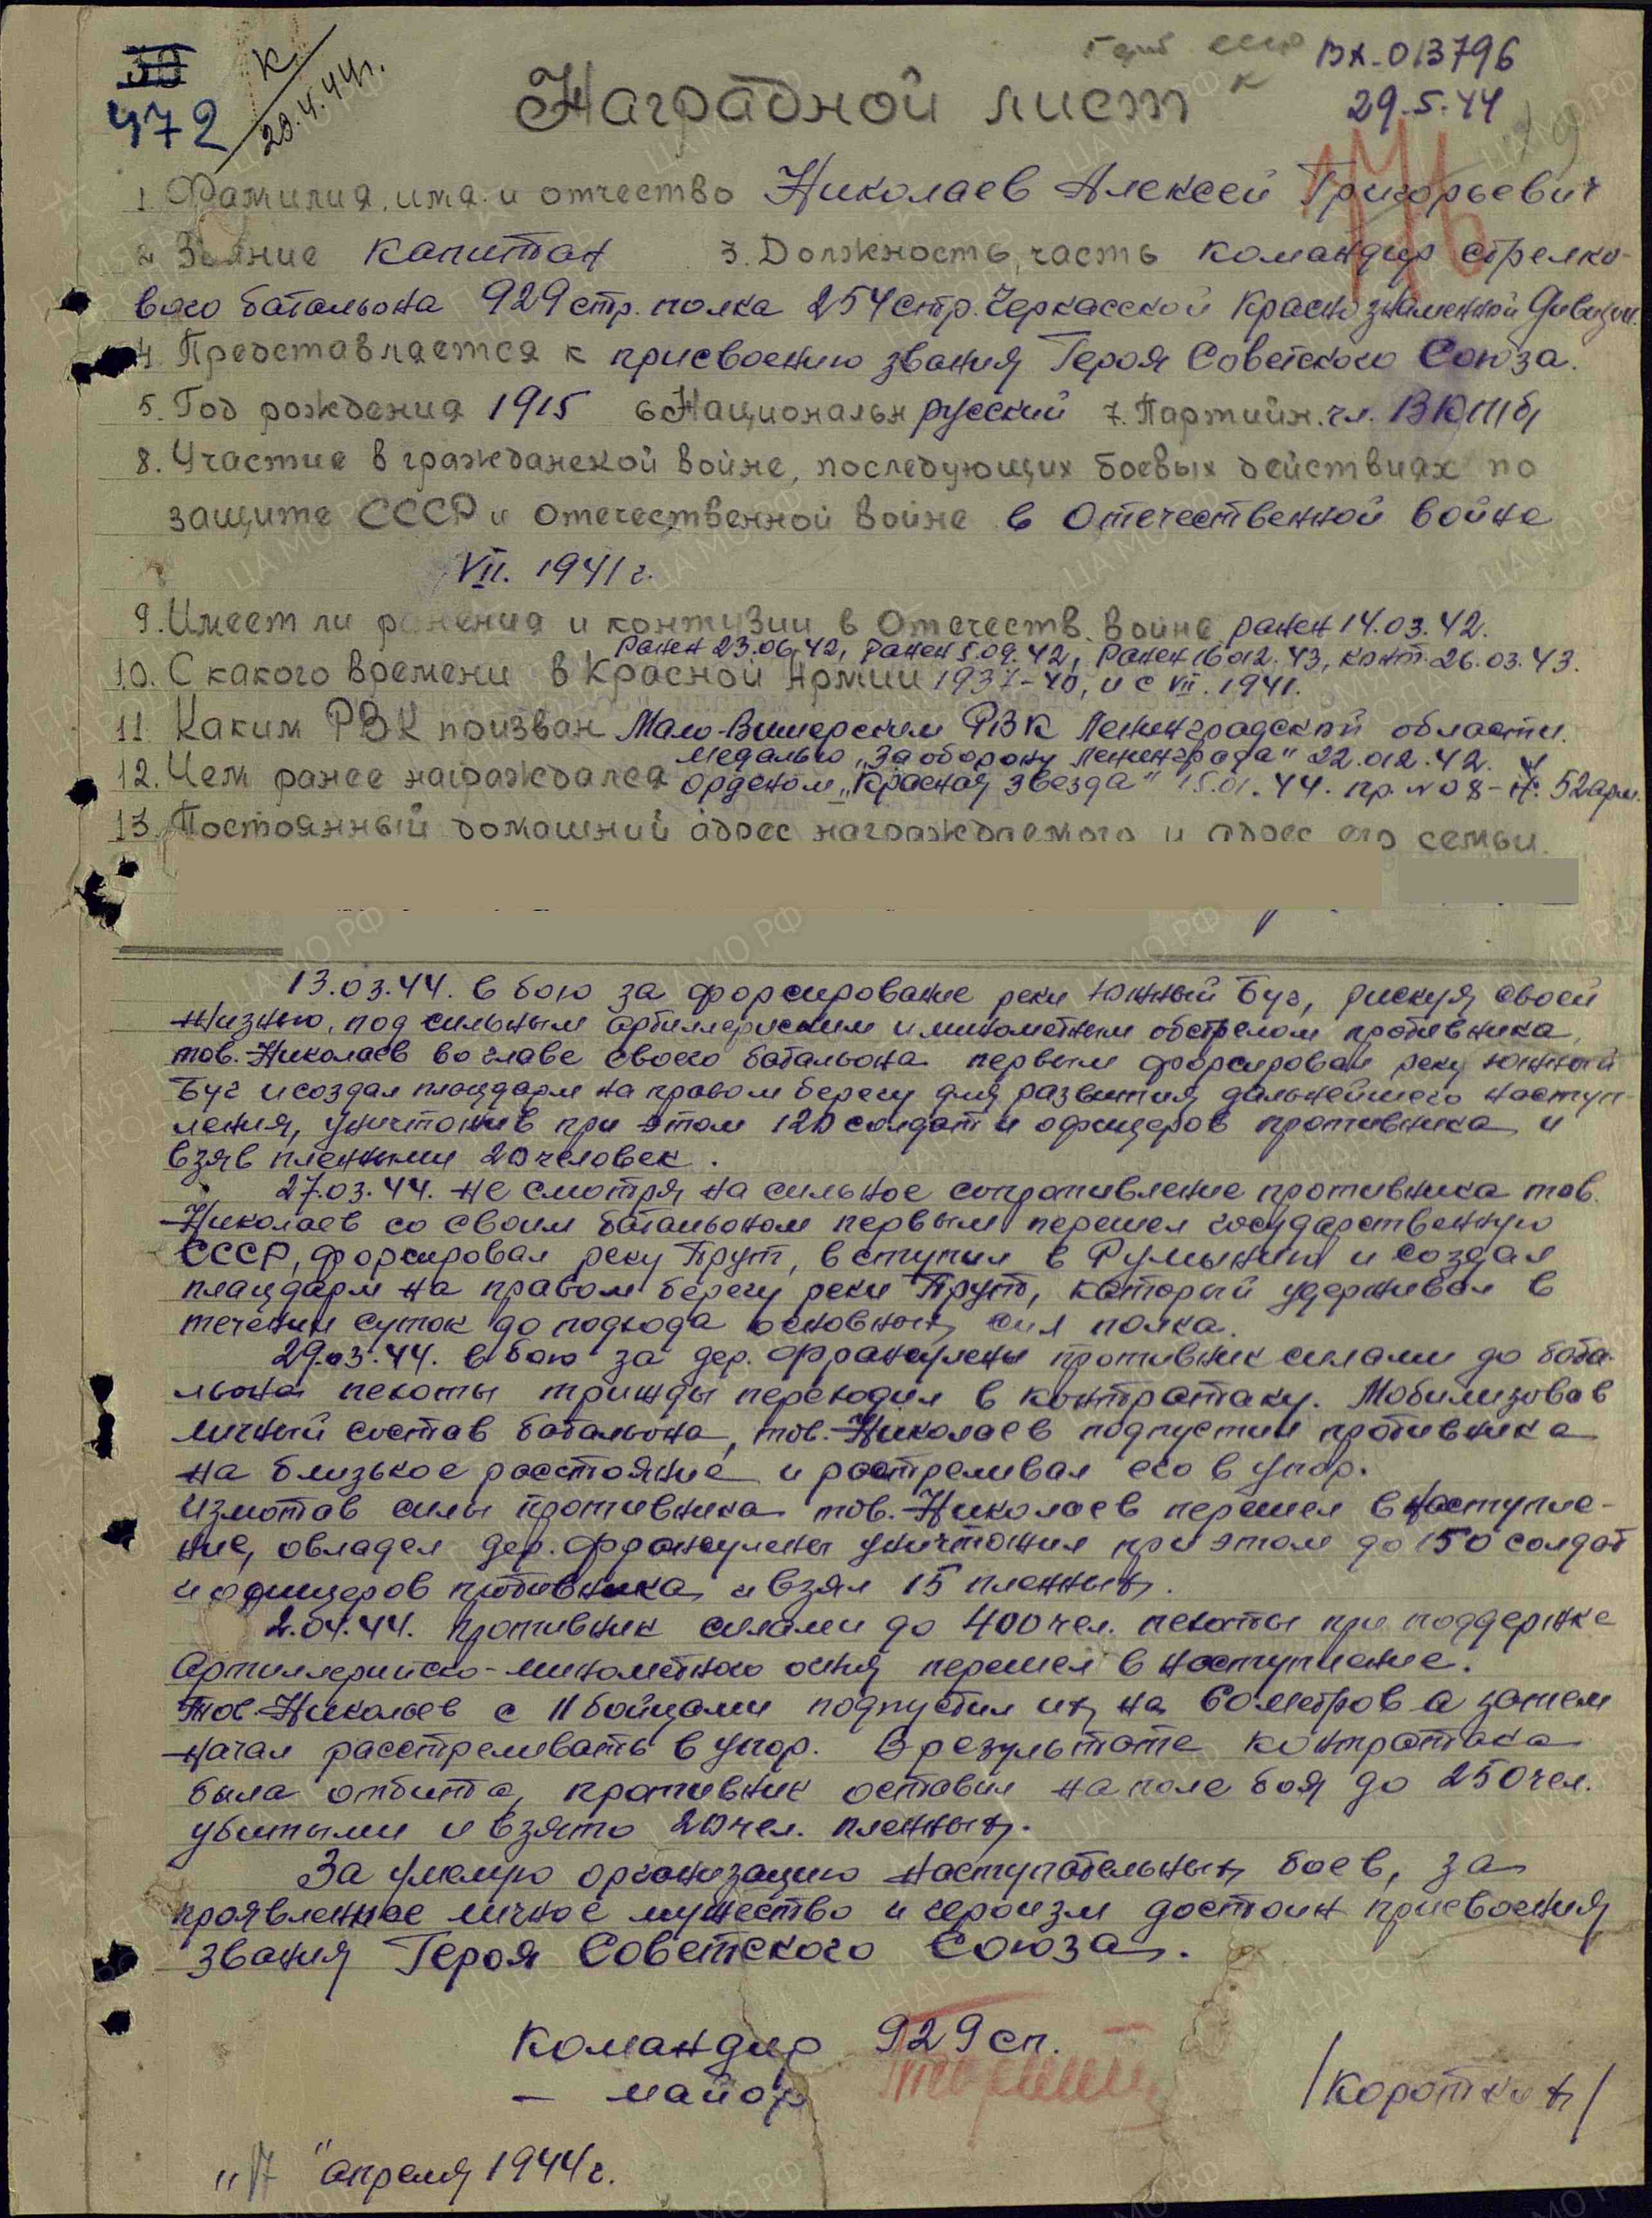 30
472
К
29.4.44г.
Вх-013796
29.5.44
Наградной лист
1. Фамилия, имя и отчество Николаев Алексей Григорьевич
2. Звание капитан 3. Должность, часть командир стрелко-
вого батальона 929 стр. полка 254 стр. Черкасской Краснознаменной дивизии.
4. Представляется к присвоению звания Героя Советского Союза.
5. Год рождения 1915 6 Национальн русский 7. Партийн. чл. ВКП/б/
8. Участие в гражданской войне, последующих боевых действиях по
защите СССР и отечественной войне в Отечественной войне
VII. 1941 г.
9. Имеет ли ранения и контузии в Отечеств. войне ранен 14.03.42.
ранен 23.06.42, ранен 5.09.42, ранен 16.012.43, конт. 26.03.43.
10. С какого времени в Красной Армии 1937-40, и с VII. 1941.
11. Каким РВК призван Мало-Вишерским РВК Ленинградской области.
медалью "За оборону Ленинграда" 22.012.42. и
12. Чем ранее награждался орденом "Красная звезда" 15.01.44. пр. №08-н. 52 арм.
13. Постоянный домашний адрес награждаемого и адрес его семьи.
13.03.44. в бою за форсирование реки Южный Буг, рискуя своей
жизнью, под сильным артиллериским и минометным обстрелом противника,
тов. Николаев во главе своего батальона первым форсировал реку Южный
Буг и создал плацдарм на правом берегу для развития дальнейшего наступ-
ления, уничтожив при этом 120 солдат и офицеров противника и
взяв пленными 20 человек.
27.03.44. не смотря на сильное сопротивление противника тов.
Николаев со своим батальоном первым перешел государственную
СССР, форсировал реку Прут, вступил в Румынию и создал
плацдарм на правом берегу реки Прут, который удерживал в
течении суток до подхода основных сил полка.
29.03.44. в бою за дер. Франкулены противник силами до бата-
льона пехоты трижды переходил в контратаку. Мобилизовав
личный состав батальона, тов. Николаев подпустил противника
на близькое расстояние и растреливал его в упор.
Измотав силы противника тов. Николаев перешел в наступле-
ние, овладел дер. Франкулены уничтожил при этом до 150 солдат
и офицеров противника и взял 15 пленных.
2.04.44. противник силами до 400 чел. пехоты при поддержке
Артиллерийско-минометного огня перешел в наступление.
Тов. Николаев с 11 бойцами подпустил их на 60 метров а затем
начал расстреливать в упор. В результате контратака
была отбита, противник оставил на поле боя до 250 чел.
убитыми и взято 20 чел. пленных.
За умелую организацию наступательных боев, за
проявленное личное мужество и героизм достоин присвоения
звания Героя Советского Союза.
Командир 929 сп.
- майор /Коротких/
"17" апреля 1944 г.